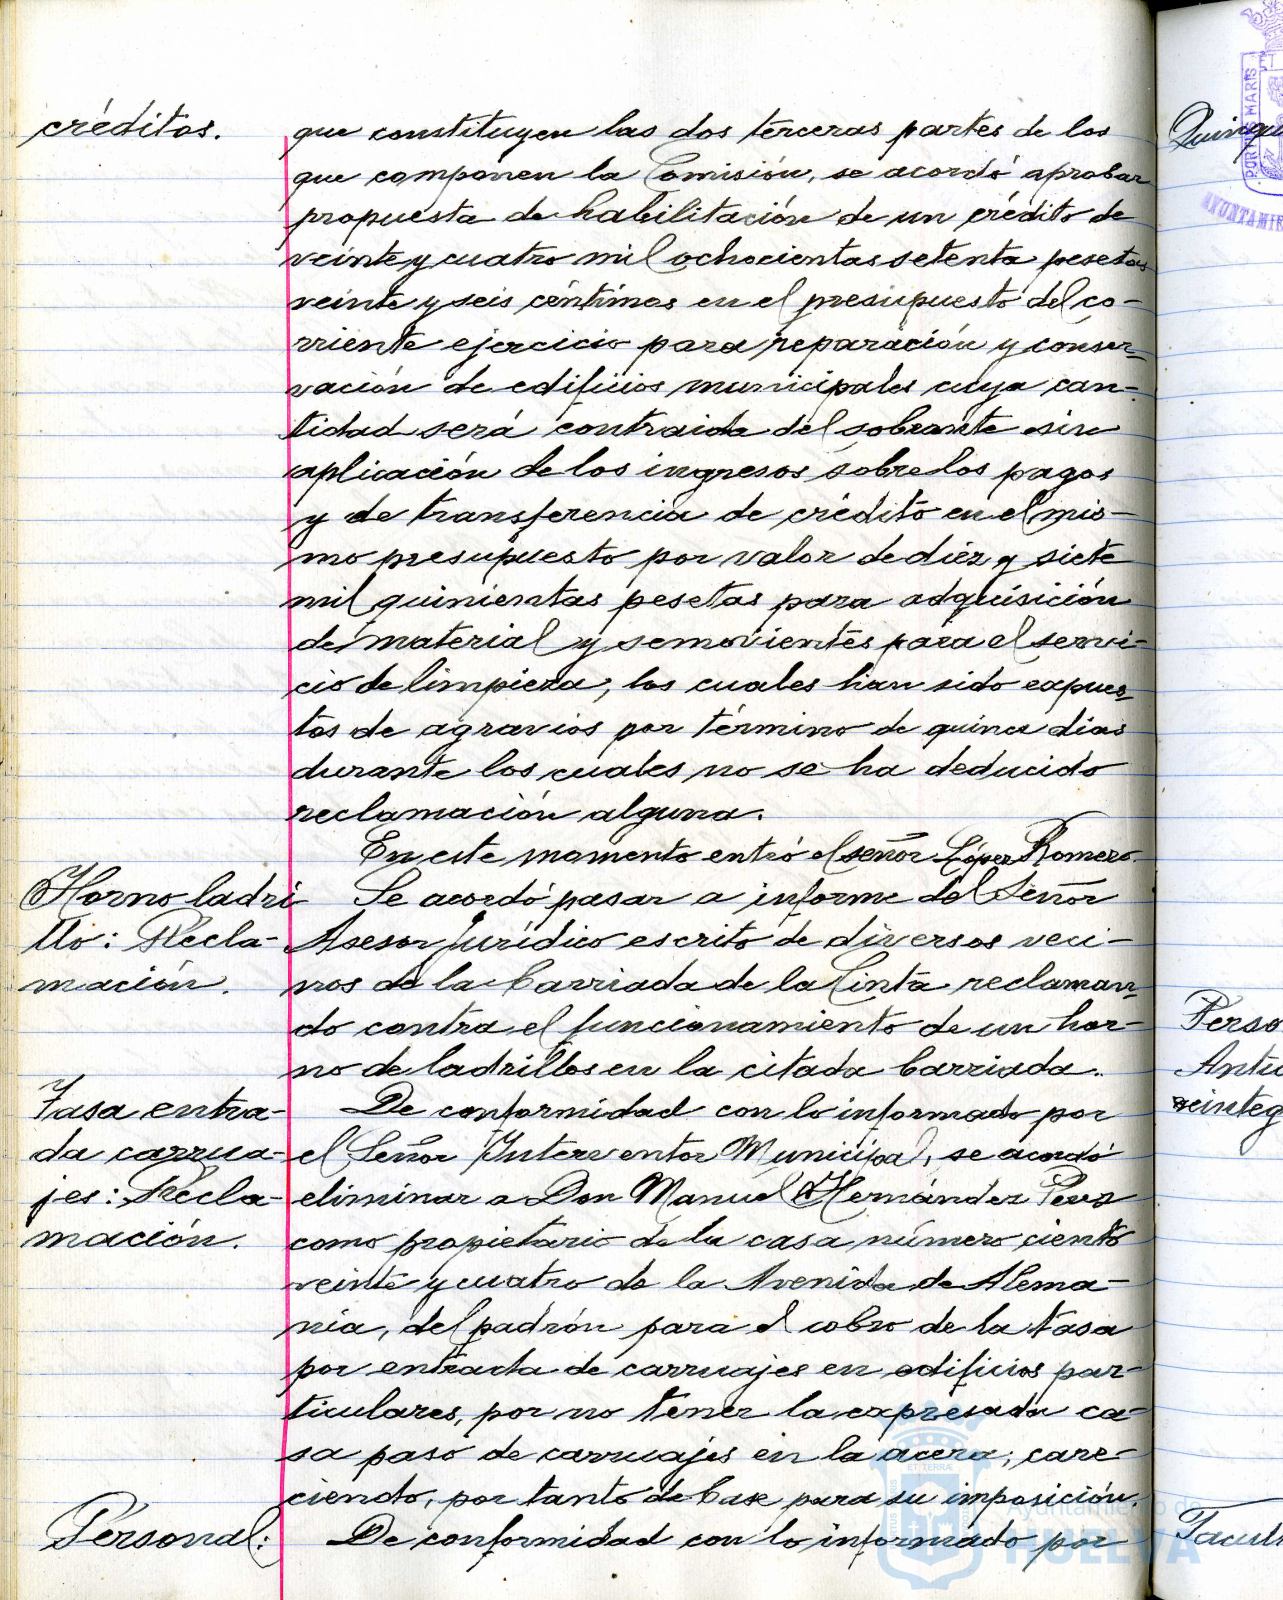 créditos.
que constituyen las dos terceras partes de los
que componen la Comisión, se acordó aprobar
propuesta de habilitación de un crédito de
veinte y cuatro mil ochocientas setenta pesetas
veinte y seis céntimos en el presupuesto del co-
rriente ejercicio para reparación y conser-
vación de edificios municipales cuya can-
tidad será contraida del sobrante sin
aplicación de los ingresos sobre los pagos
y de transferencia de crédito en el mis-
mo presupuesto por valor de diez y siete
mil quinientas pesetas para adquisición
de material y semovientes para el servi-
cio de limpieza, los cuales han sido expues-
tos de agravios por término de quince dias
durante los cuales no se ha deducido
reclamación alguna.
En este momento entró el señor López Romero.
Horno ladri
llo: Recla-
mación.
Se acordó pasar a informe del Señor
Asesor Jurídico escrito de diversos veci-
nos de la barriada de la Cinta reclaman-
do contra el funcionamiento de un hor-
no de ladrillos en la citada barriada.
Tasa entra-
da carrua-
jes: Recla-
mación.
De conformidad con lo informado por
el Señor Interventor Municipal, se acordó
eliminar a Don Manuel Hernández
como propietario de la casa número ciento
veinte y cuatro de la Avenida de Alema-
nia, del padrón para el cobro de la tasa
por entrada de carruajes en edificios par-
ticulares, por no tener la expresada ca-
sa paso de carruajes en la acera, care-
ciendo, por tanto de base para su imposición.
Personal:
De conformidad con lo informado por
Ayuntamiento de
HUELVA
PORTUS MARIS ET
AYUNTAMIE
Perso